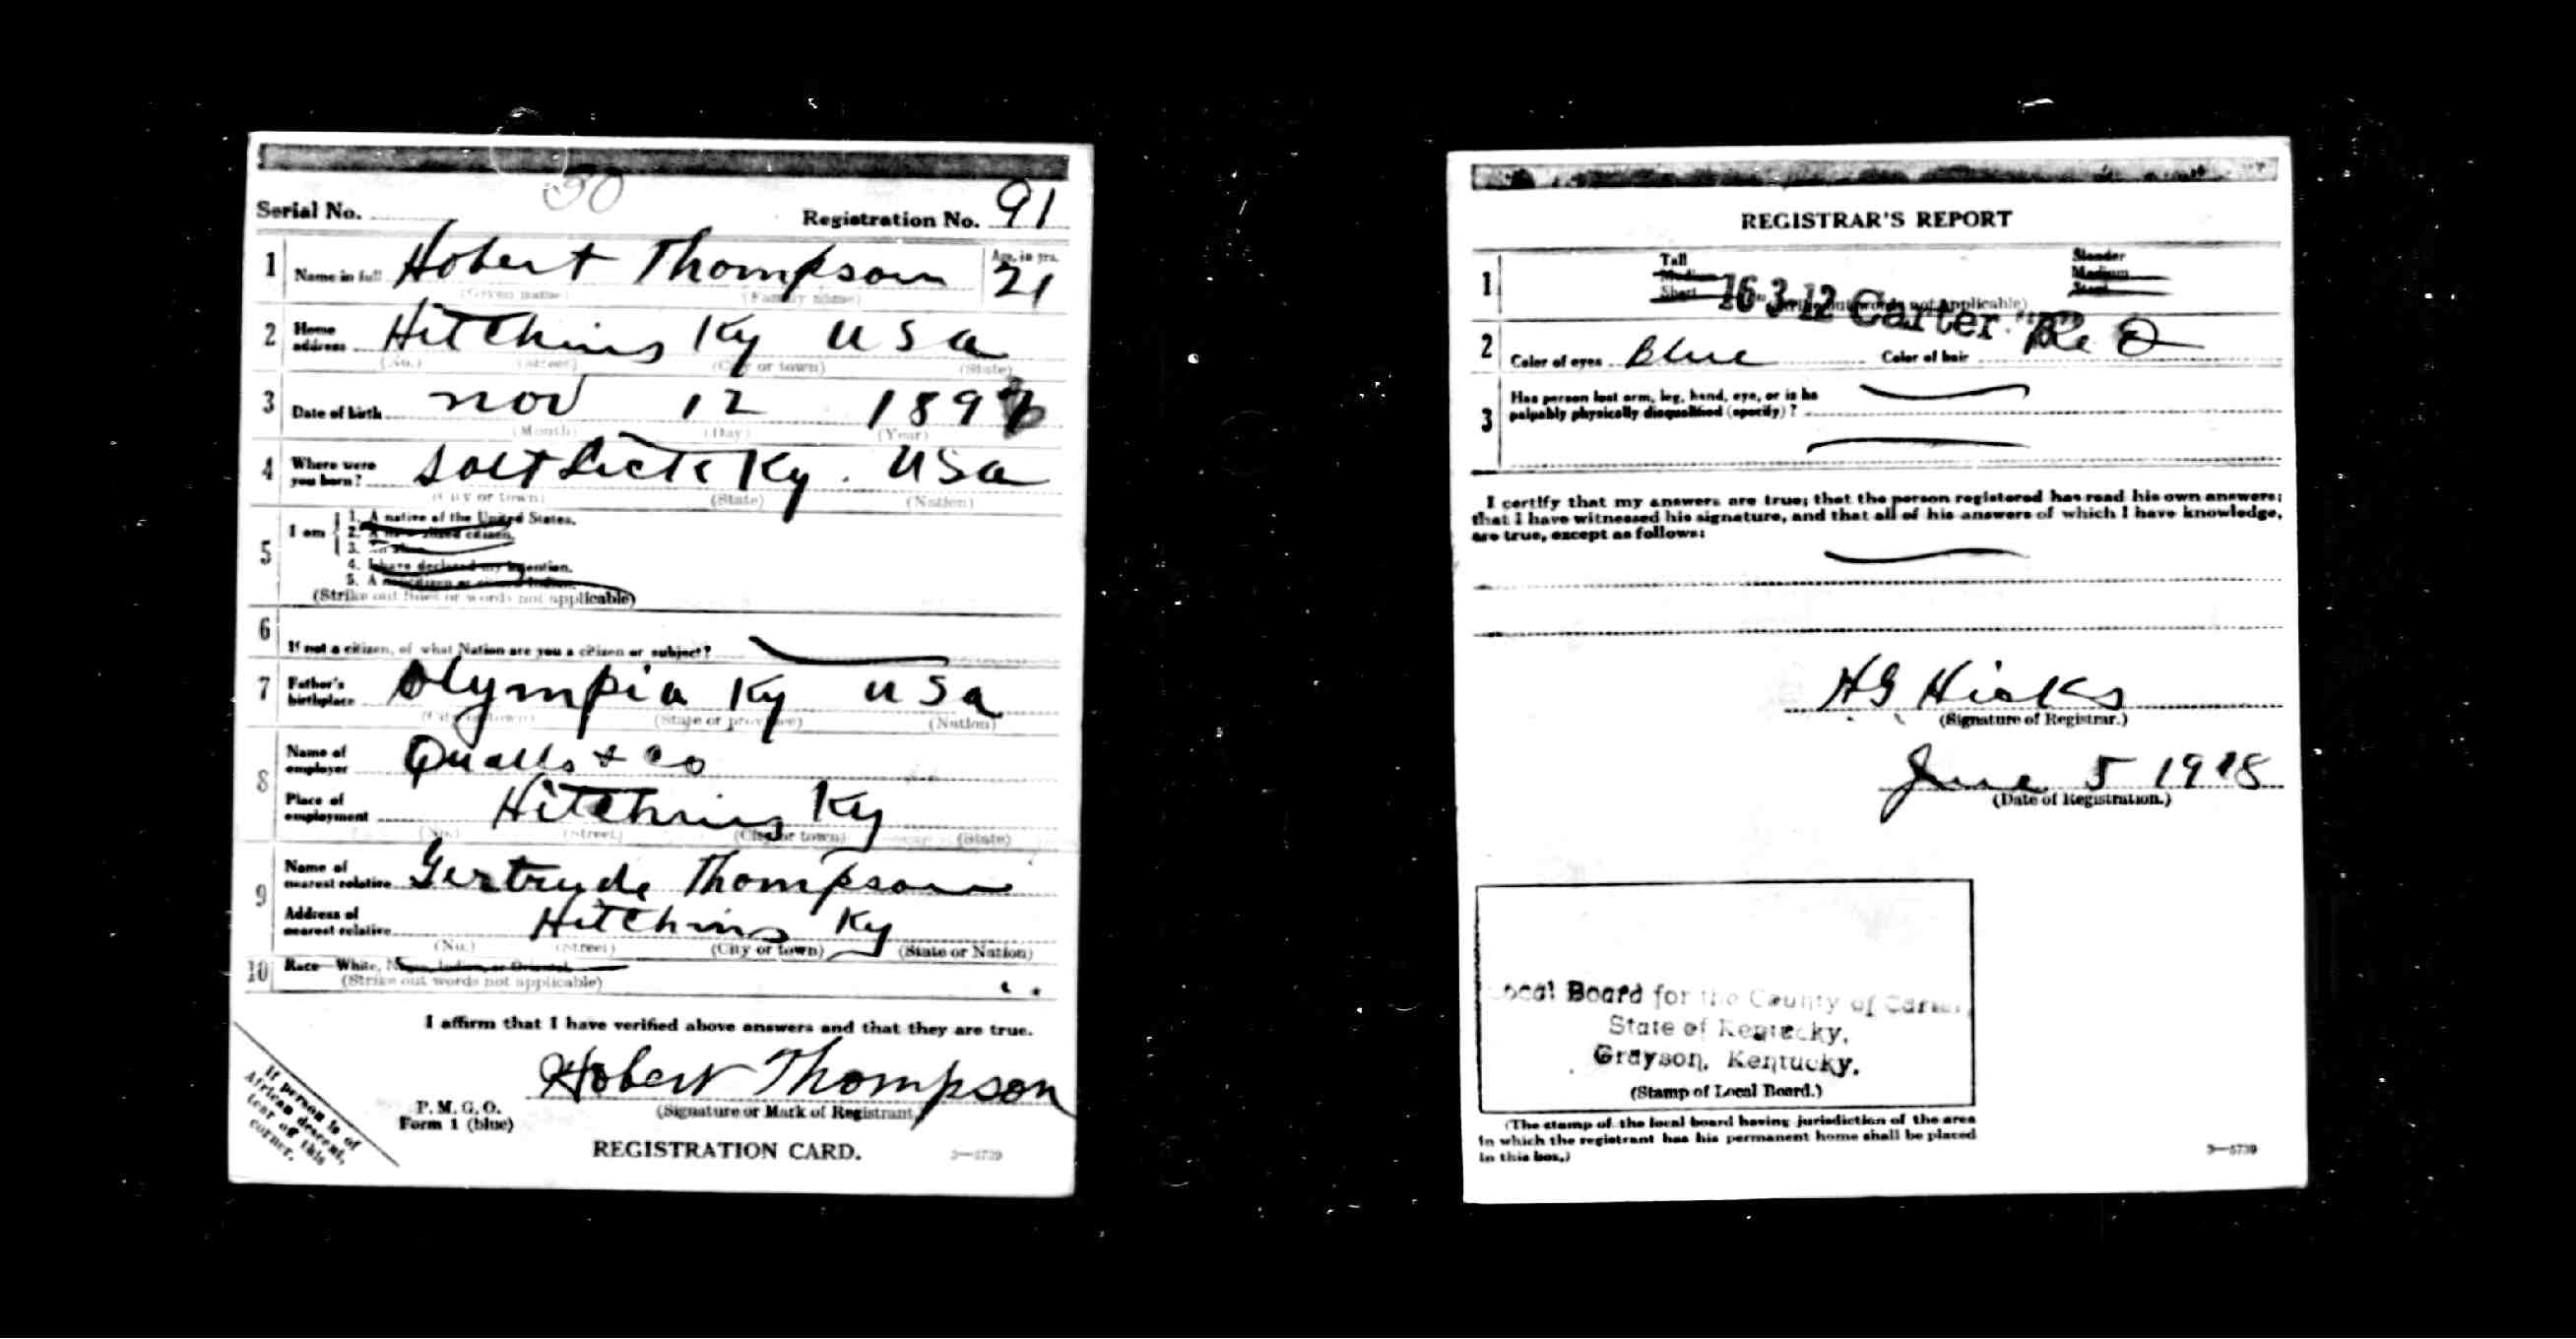 50
Serial No. Registration No. 91
1 Name in full Hobert Thompson Age, in yrs. 21
(Given name) (Family name)
2 Home address Hitchins Ky USa
(No.) (Street) (City or town) (State)
3 Date of birth Nov 12 189
(Month) (Day) (Year)
4 Where were you born? Salt Lick Ky. USa
(City or town) (State) (Nation)
5 I am 1. A native of the United States.
2. A naturalized citizen.
3. An alien.
4. I have declared my intention.
5. A noncitizen or citizen Indian.
(Strike out lines or words not applicable)
6 If not a citizen, of what Nation are you a citizen or subject?
7 Father's birthplace Olympia Ky USa
(City or town) (State or province) (Nation)
8 Name of employer Qualls + Co
Place of employment Hitchins Ky
(No.) (Street) (City or town) (State)
9 Name of nearest relative Gertrude Thompson
Address of nearest relative Hitchins Ky
(No.) (Street) (City or town) (State or Nation)
10 Race—White, Negro, Indian, or Oriental
(Strike out words not applicable)
I affirm that I have verified above answers and that they are true.
Hobert Thompson
(Signature or Mark of Registrant.)
P. M. G. O.
Form 1 (blue)
REGISTRATION CARD.
3—5739
If person is of
African descent,
tear off this
corner.
REGISTRAR'S REPORT
1 Tall Slender
Medium Medium
Short Stout
(Strike out words not applicable)
16-3-12 Carter.
2 Color of eyes Blue Color of hair Red
3 Has person lost arm, leg, hand, eye, or is he
palpably physically disqualified (specify)?
I certify that my answers are true; that the person registered has read his own answers;
that I have witnessed his signature, and that all of his answers of which I have knowledge,
are true, except as follows:
HG Hicks
(Signature of Registrar.)
June 5 1918
(Date of Registration.)
Local Board for the County of Carter,
State of Kentucky,
Grayson, Kentucky.
(Stamp of Local Board.)
(The stamp of the local board having jurisdiction of the area
in which the registrant has his permanent home shall be placed
in this box.)
3—5739